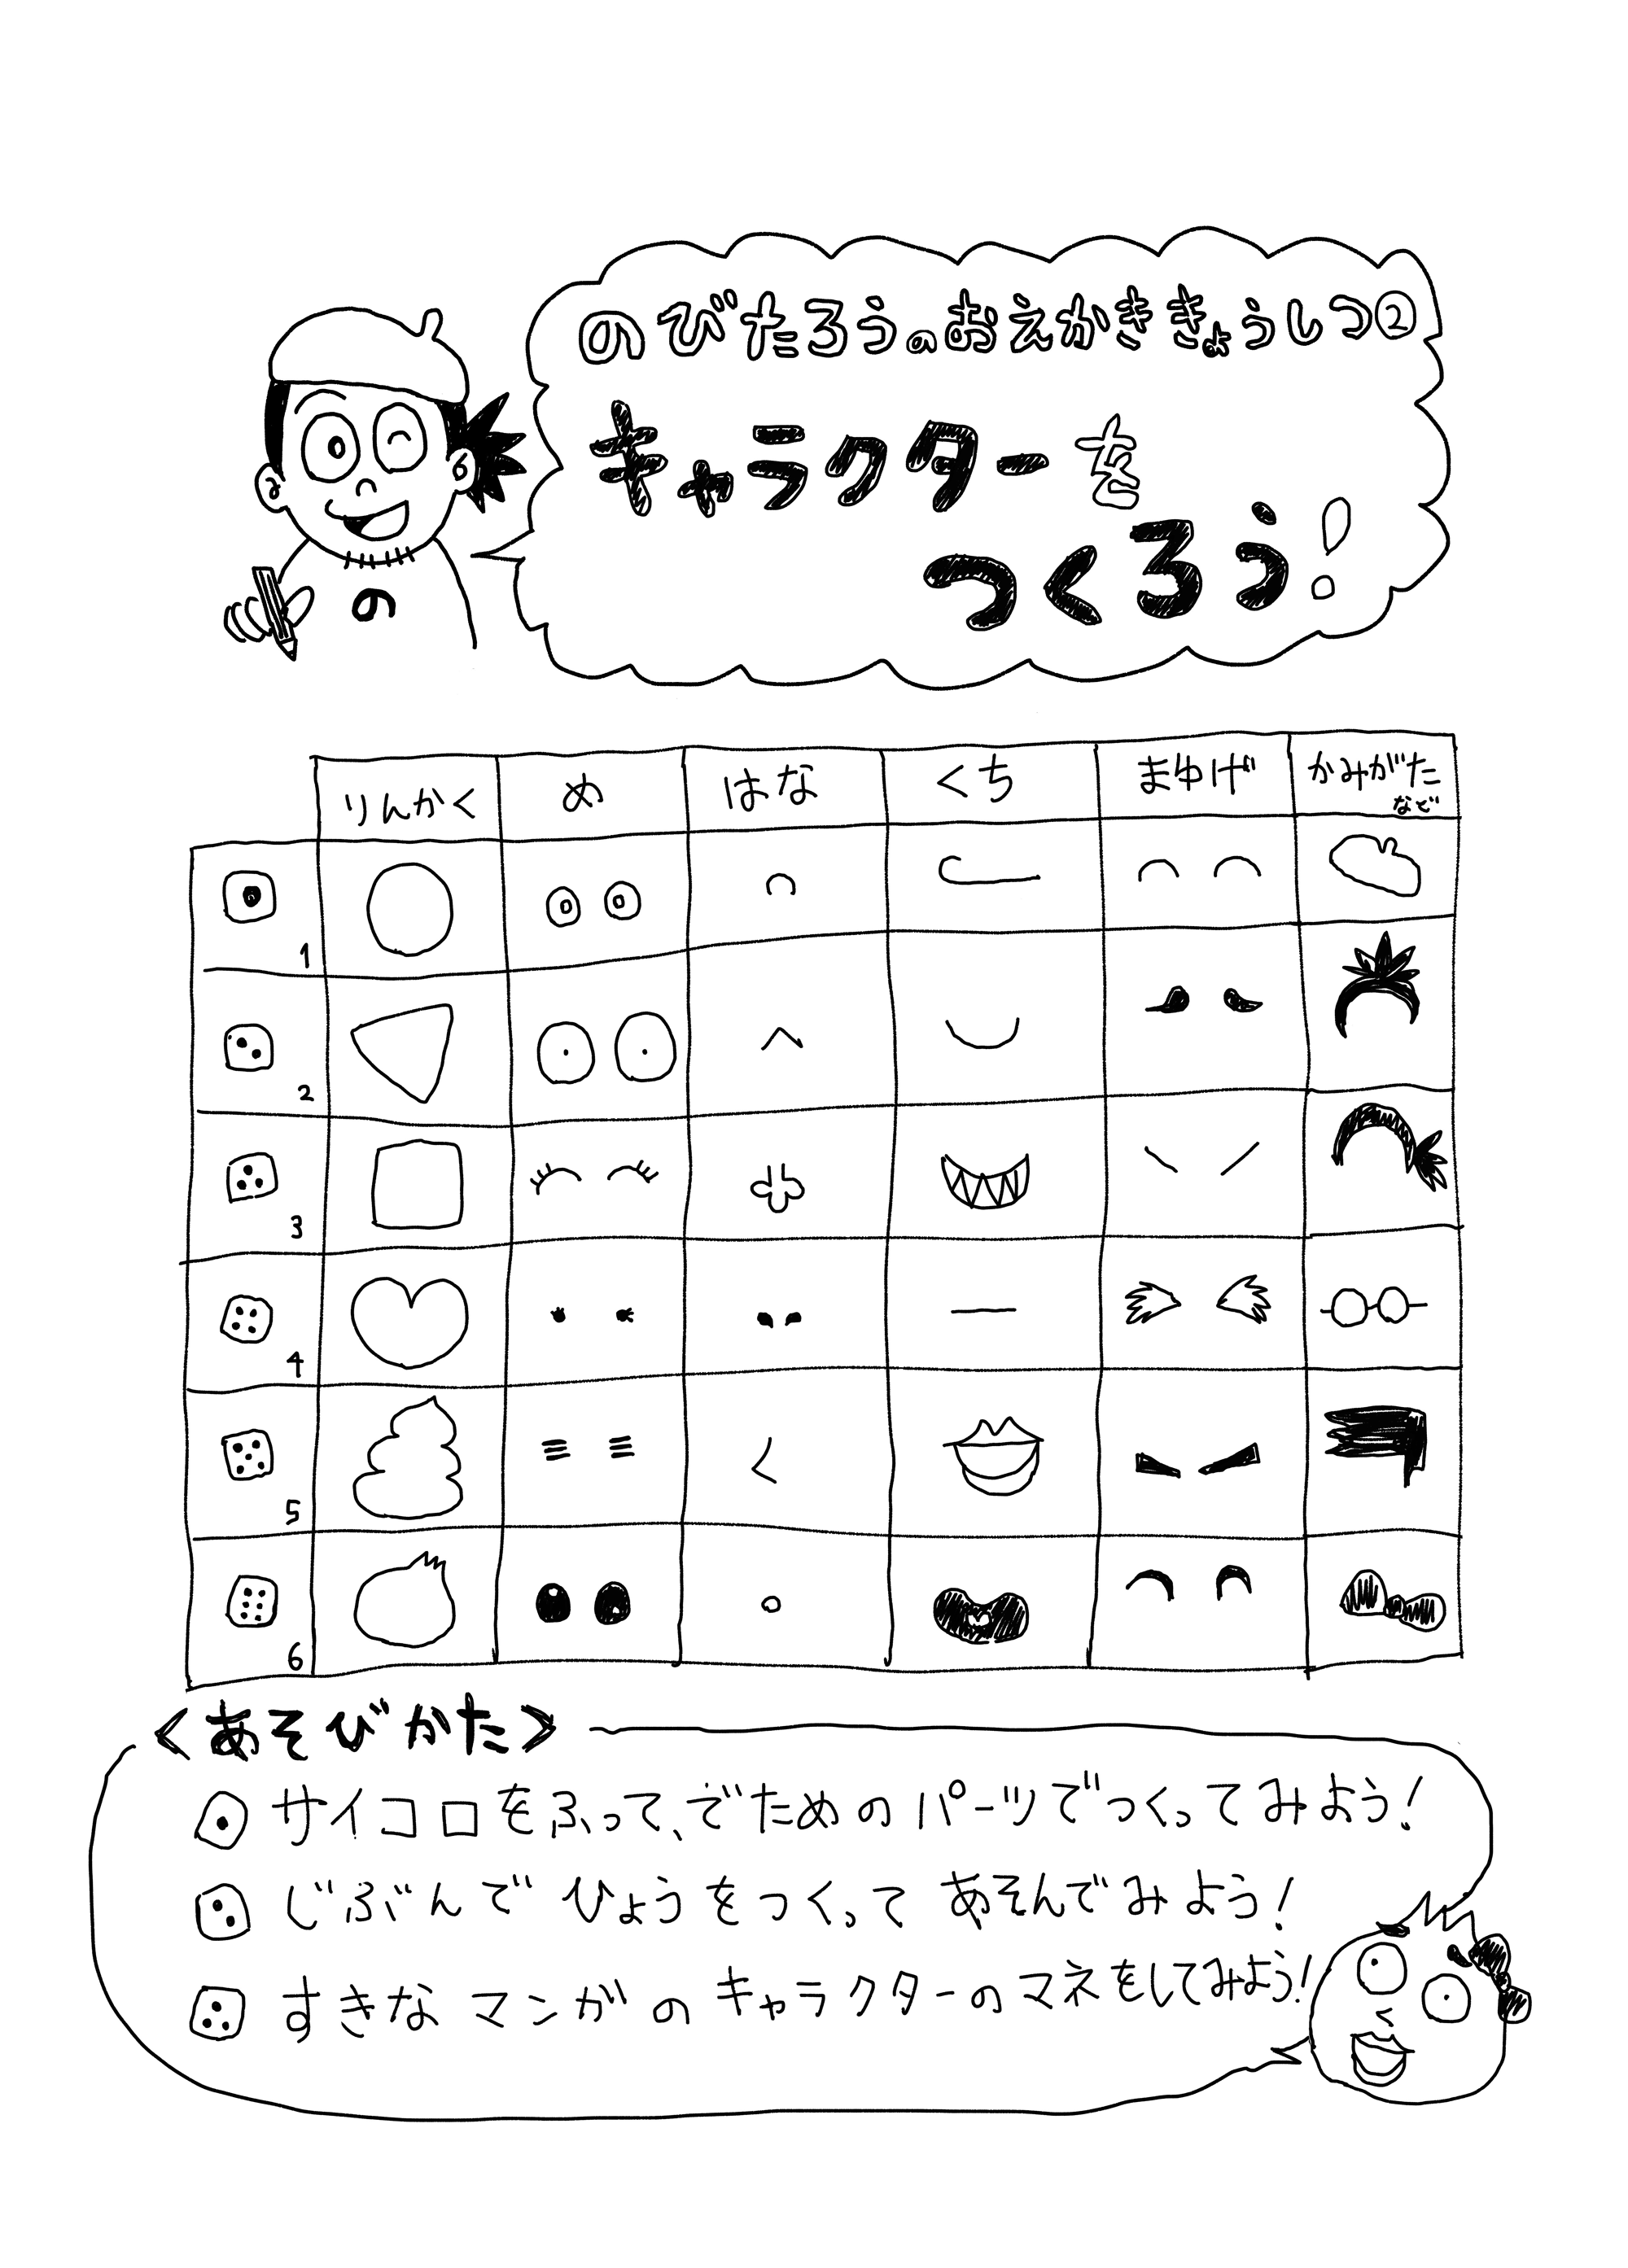 のびたろうのおえかききょうしつ②
キャラクターを
つくろう!
の
りんかく め はな くち まゆげ かみがたなど
1
2
3
4
5
6
<あそびかた>
サイコロをふって、でためのパーツでつくってみよう!
じぶんで ひょうをつくって あそんでみよう!
すきな マンガの キャラクターのマネをしてみよう!